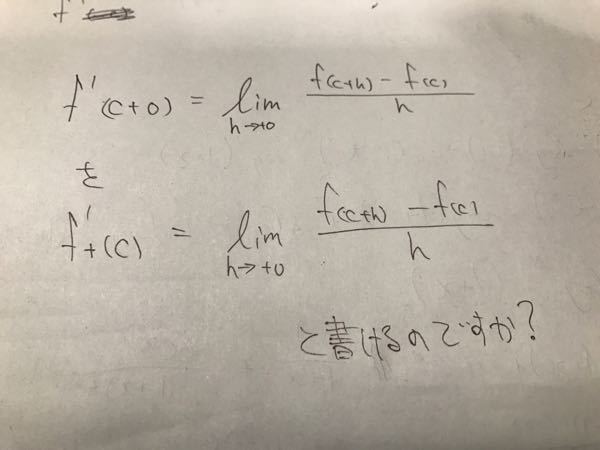 f'(c+0) = lim_{h→+0} \frac{f(c+h) - f(c)}{h}
を
f'+(c) = lim_{h→+0} \frac{f(c+h) - f(c)}{h}
と書けるのですか?